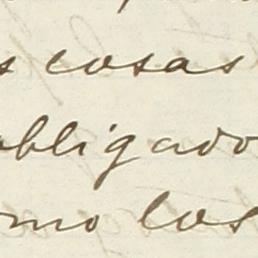 s cosas
obligado
omo los